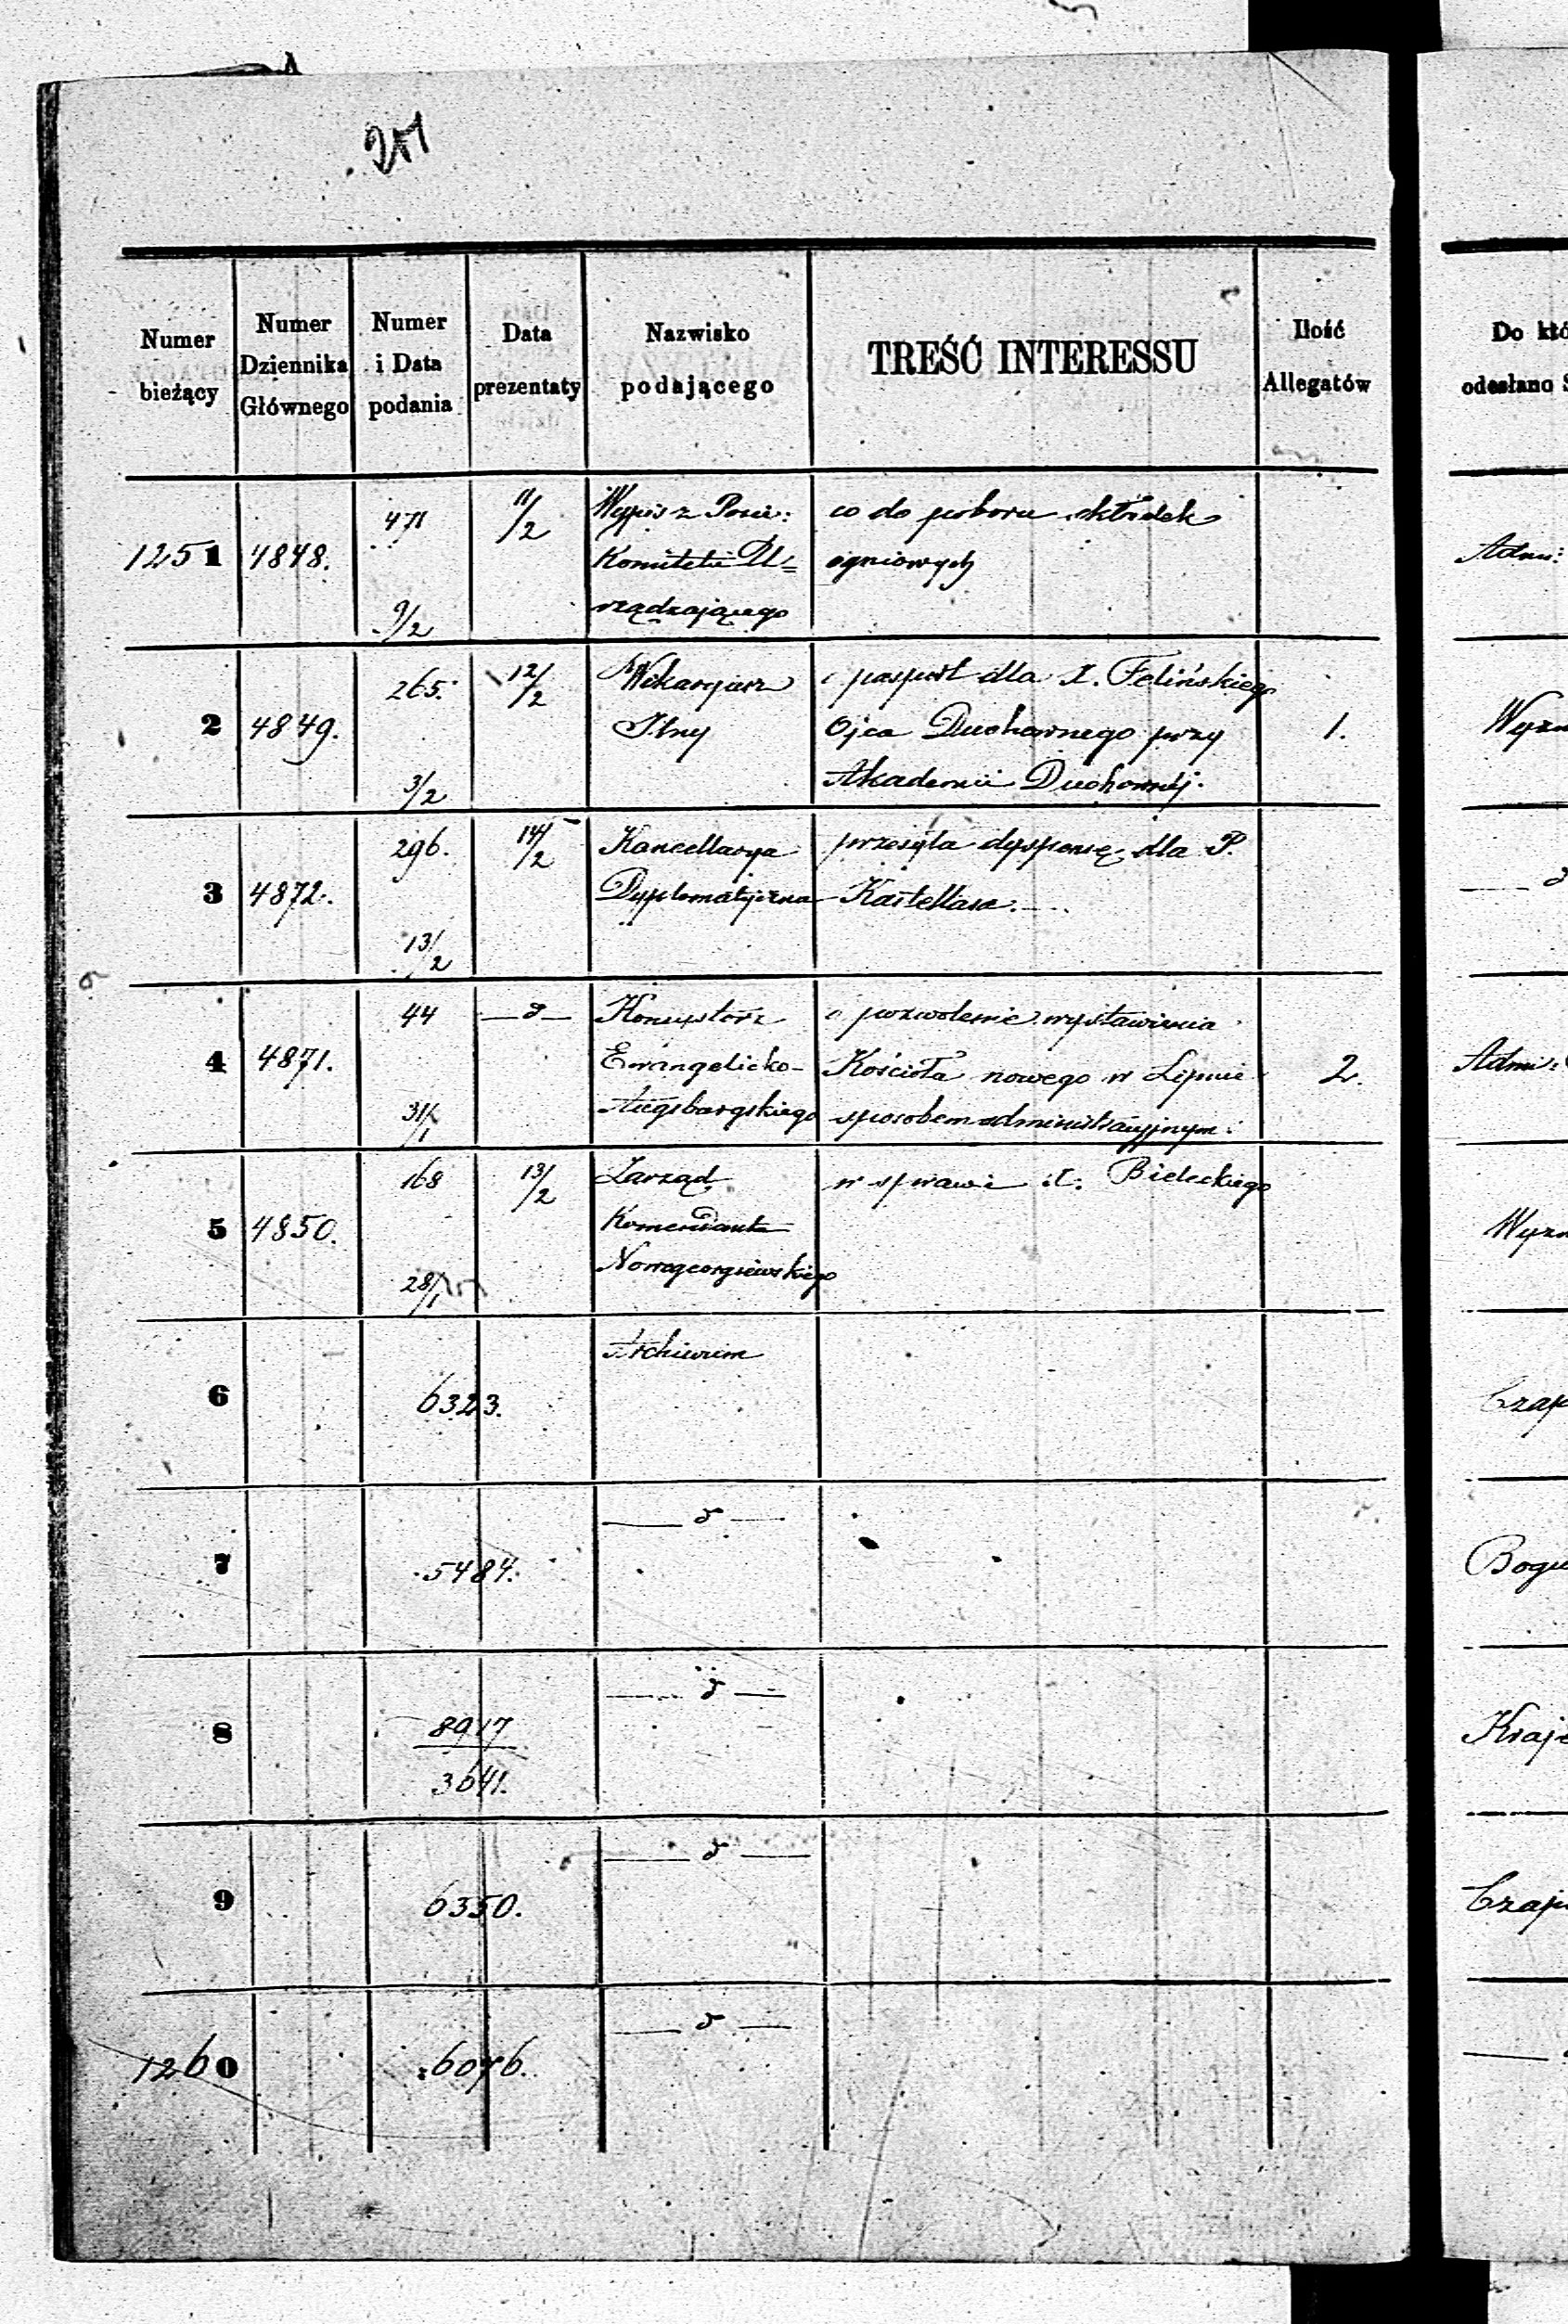 251
Numer bieżący | Numer Dziennika Głównego | Numer i Data podania | Data prezentaty | Nazwisko podającego | TREŚĆ INTERESSU | Ilość Allegatów | Do któ
odesłano S
1251 | 4848. | 471 9/2 | 11/2 | Wypis z Posie: | co do poboru składek | | Adm:
Komitetu U= | ogniowych
rządzającego
2 | 4849. | 265. 3/2 | 12/2 | Wikaryusz | o pasport dla X. Felińskiego | 1. | Wyzn
Ojca Duchownego przy
Akademii Duchownej.
3 | 4872. | 296. 13/2 | 14/2 | Kancellarya | przesyła dyspensę dla P. | | — d
Dyplomatyczna | Kastellaza.
4 | 4871. | 44 31/1 | — d — | Konsystorz | o pozwolenie wystawienia | 2. | Adm:
Ewangelicko- | Kościoła nowego w Lipnie
Augsburgskiego | sposobem administracyjnym.
5 | 4850. | 168 28/1 | 13/2 | Zarząd | w sprawie X. Bieleckiego | | Wyzn
Komendanta
Nowogeorgiewskiego
6 | 6323. | Archiwum | Czap
7 | 5484. | — d — | Bogu
8 | 8917 | — d — | Kraje
3641.
9 | 6350. | — d — | Czap
1260 | 6076. | — d — | —